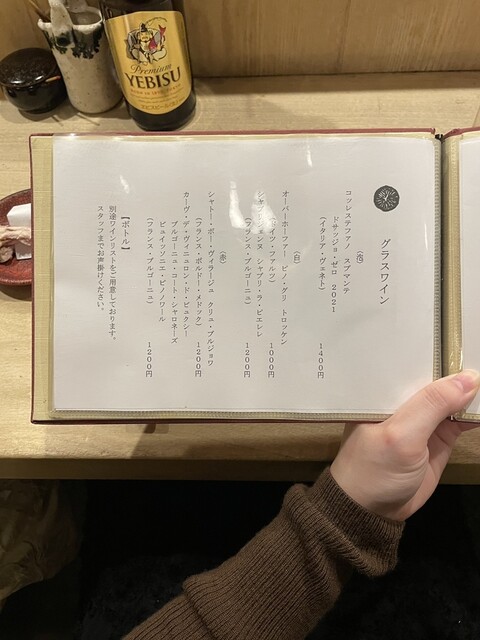 グラスワイン
〈泡〉
コッレステファノ　スプマンテ
ドサッジョ・ゼロ　2021
(イタリア・ヴェネト)
1400円
〈白〉
オーバーホーファー　ピノ・グリ　トロッケン
(ドイツ・ファルツ)
1000円
シャブリジェンヌ　シャブリ・ラ・ピエレレ
(フランス・ブルゴーニュ)
1200円
〈赤〉
シャトー・ボー・ヴィラージュ　クリュ・ブルジョワ
(フランス・ボルドー・メドック)
1200円
カーヴ・デ・ヴィニュロン・ド・ビュクシー
ブルゴーニュ・コート・シャロネーズ
ビュイッソニエ・ピノノワール
(フランス・ブルゴーニュ)
1200円
【ボトル】
別途ワインリストをご用意しております。
スタッフまでお声掛けください。
Premium
YEBISU